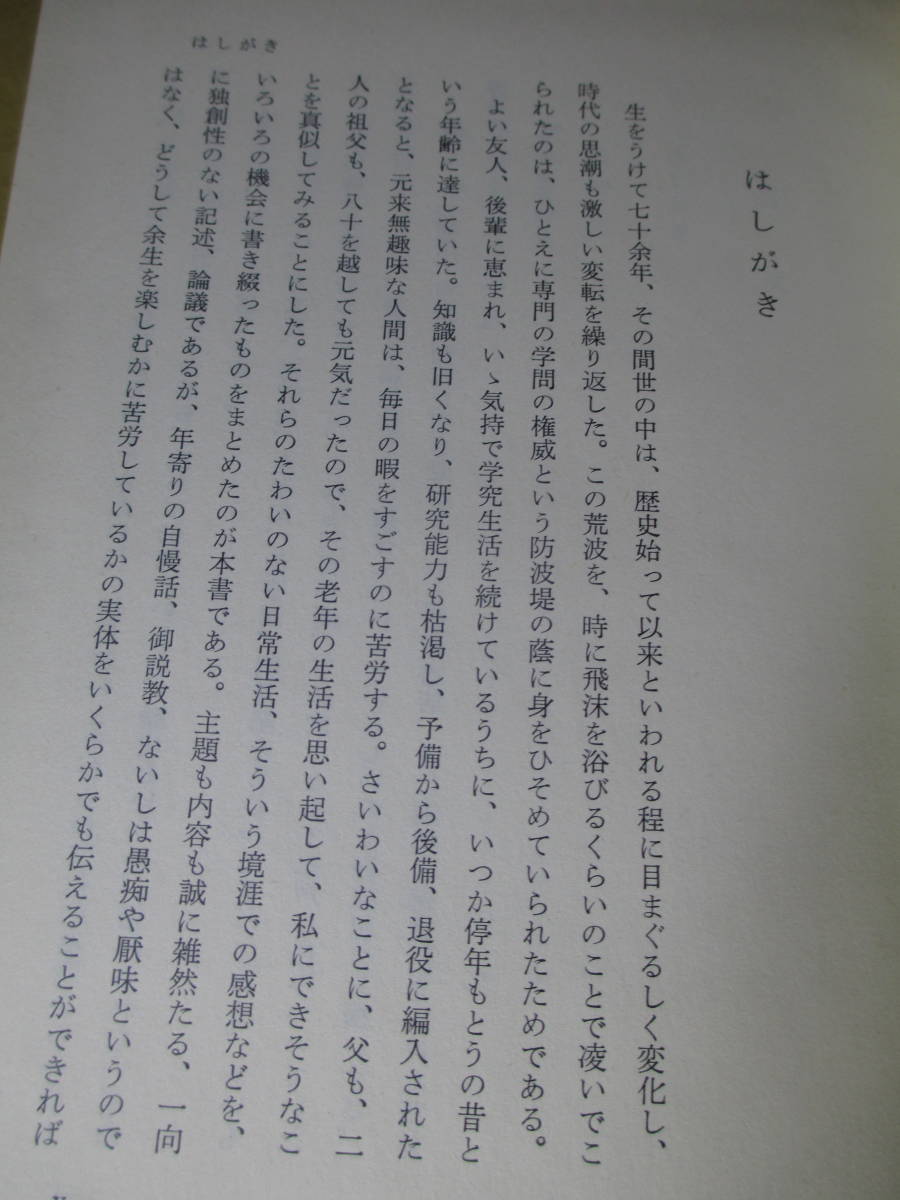 はしがき
はしがき
生をうけて七十余年、その間世の中は、歴史始って以来といわれる程に目まぐるしく変化し、
時代の思潮も激しい変転を繰り返した。この荒波を、時に飛沫を浴びるくらいのことで凌いでこ
られたのは、ひとえに専門の学問の権威という防波堤の蔭に身をひそめていられたためである。
よい友人、後輩に恵まれ、いゝ気持で学究生活を続けているうちに、いつか停年もとうの昔と
いう年齢に達していた。知識も旧くなり、研究能力も枯渇し、予備から後備、退役に編入された
となると、元来無趣味な人間は、毎日の暇をすごすのに苦労する。さいわいなことに、父も、二
人の祖父も、八十を越しても元気だったので、その老年の生活を思い起して、私にできそうなこ
とを真似してみることにした。それらのたわいのない日常生活、そういう境涯での感想などを、
いろいろの機会に書き綴ったものをまとめたのが本書である。主題も内容も誠に雑然たる、一向
に独創性のない記述、論議であるが、年寄りの自慢話、御説教、ないしは愚痴や厭味というので
はなく、どうして余生を楽しむかに苦労しているかの実体をいくらかでも伝えることができれば